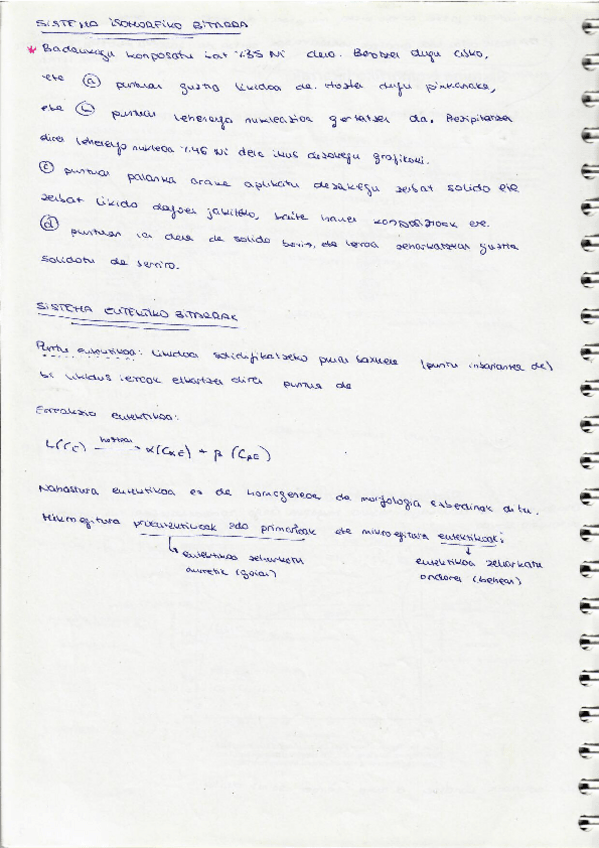 SISTEMA ISOMORFIKO BITARRA
* Badaukagu konposatu bat %35 Ni dela. Berotzen dugu asko,
eta ⓐ puntuan guztia likidoa da. Hozten dugu pixkanaka,
eta ⓑ puntuan lehenengo nukleazioa gertatzen da. Prezipitatzen
den lehenengo nukleoa %46 Ni dela ikus dezakegu grafikoki.
ⓒ puntuan palanka araua aplikatu dezakegu zenbat solido eta
zenbat likido dagoen jakiteko, baita hauen konposizioak ere.
ⓓ puntuan ia dena da solido, eta lerroa zeharkatzean guztia
solidotu da berriro.
SISTEMA EUTEKTIKO BITARRAK
Puntu eutektikoa: likidoa solidifikatzeko puntu baxuena (puntu inbariantea da)
bi likidus lerroak elkartzen diren puntua da
Erreakzio eutektikoa:
L(C_E) hoztean → α(C_αE) + β(C_βE)
Nahastura eutektikoa ez da homogeneoa, da morfologia ezberdinak ditu.
Mikroegitura proeutektikoak edo primarioak eta mikroegitura eutektikoak:
↳ eutektikoa zeharkatu aurretik (goian)
↓ eutektikoa zeharkatu ondoren (behean)